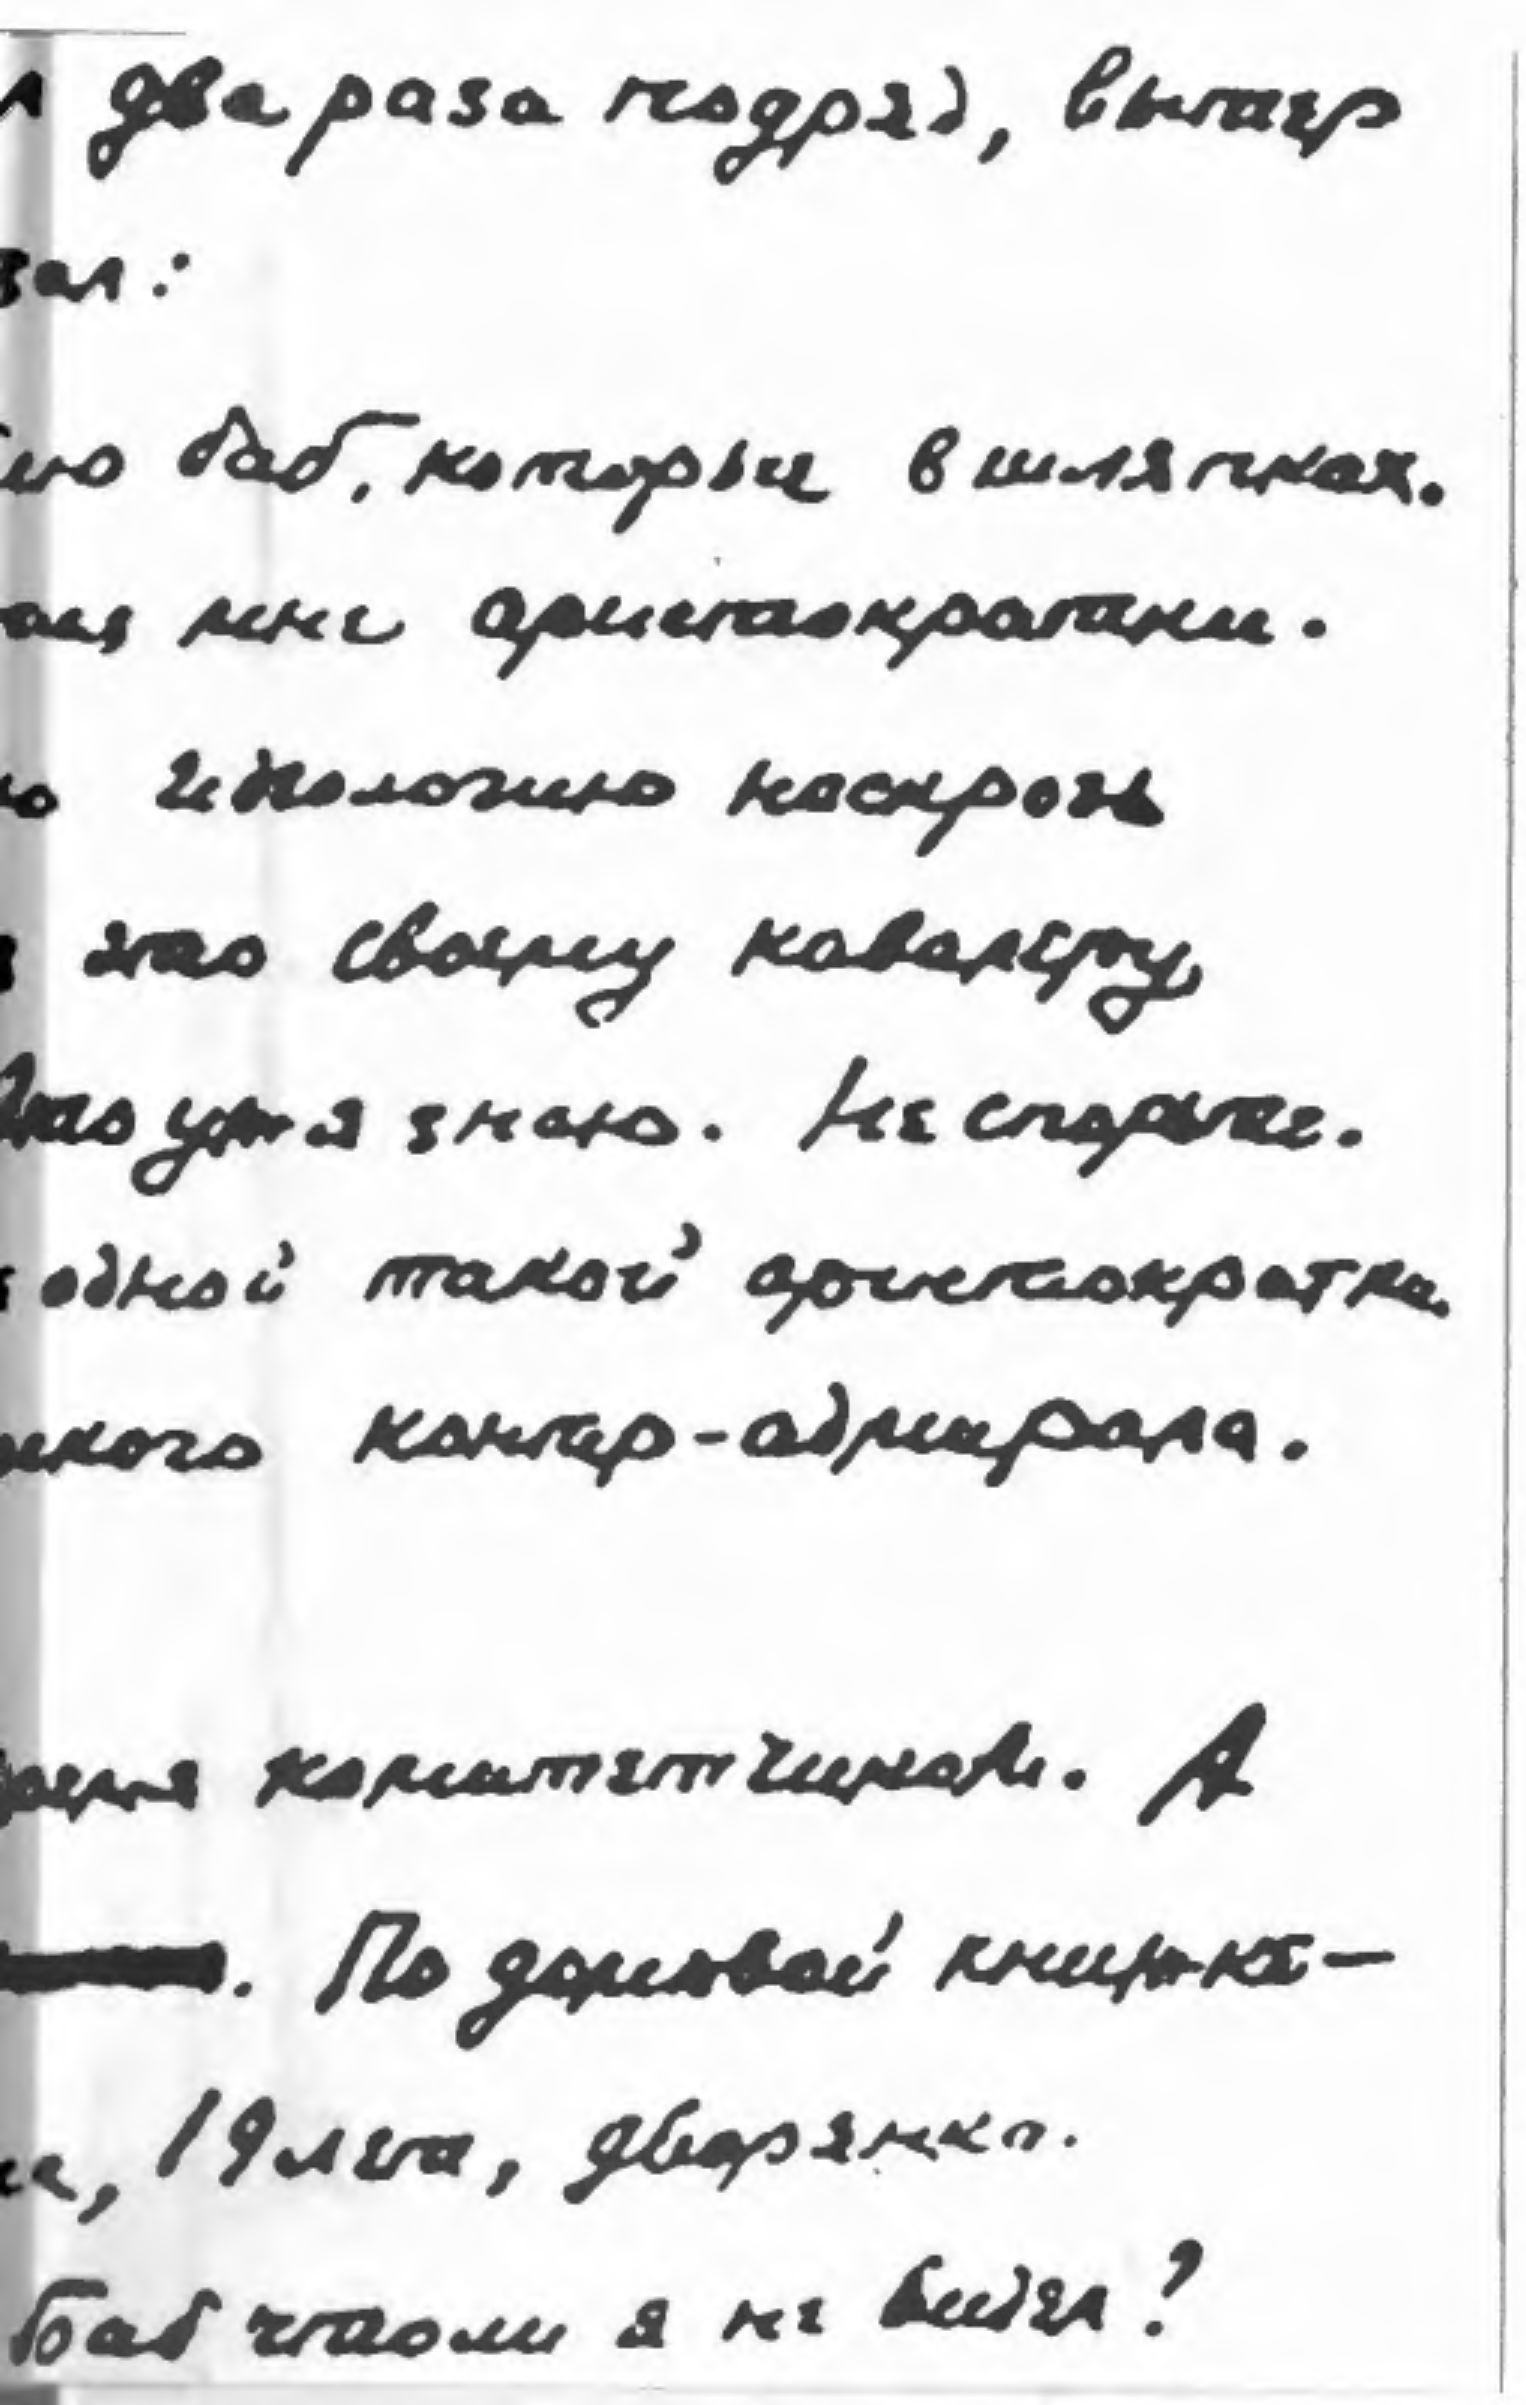 л два раза подряд, вытер
зал:
лю баб, которые в шляпках.
мне аристократки.
ю идиологию насквозь
что своему кавалеру,
Это уж я знаю. Не спорьте.
с одной такой аристократка.
ского контр-адмирала.
время комитетчиком. А
. По домовой книжке —
на, 19 лета, дворянка.
баб чтоли я не видел?